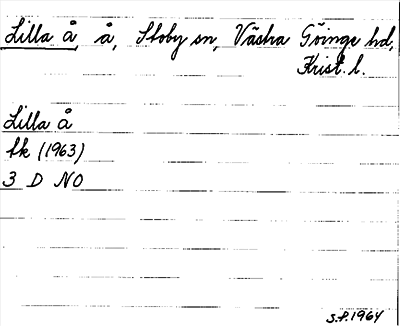 Lilla å, å, Stoby sn, Västra Göinge hd,
Krist. l.
Lilla å
fk (1963)
3 D NO
S.P. 1964